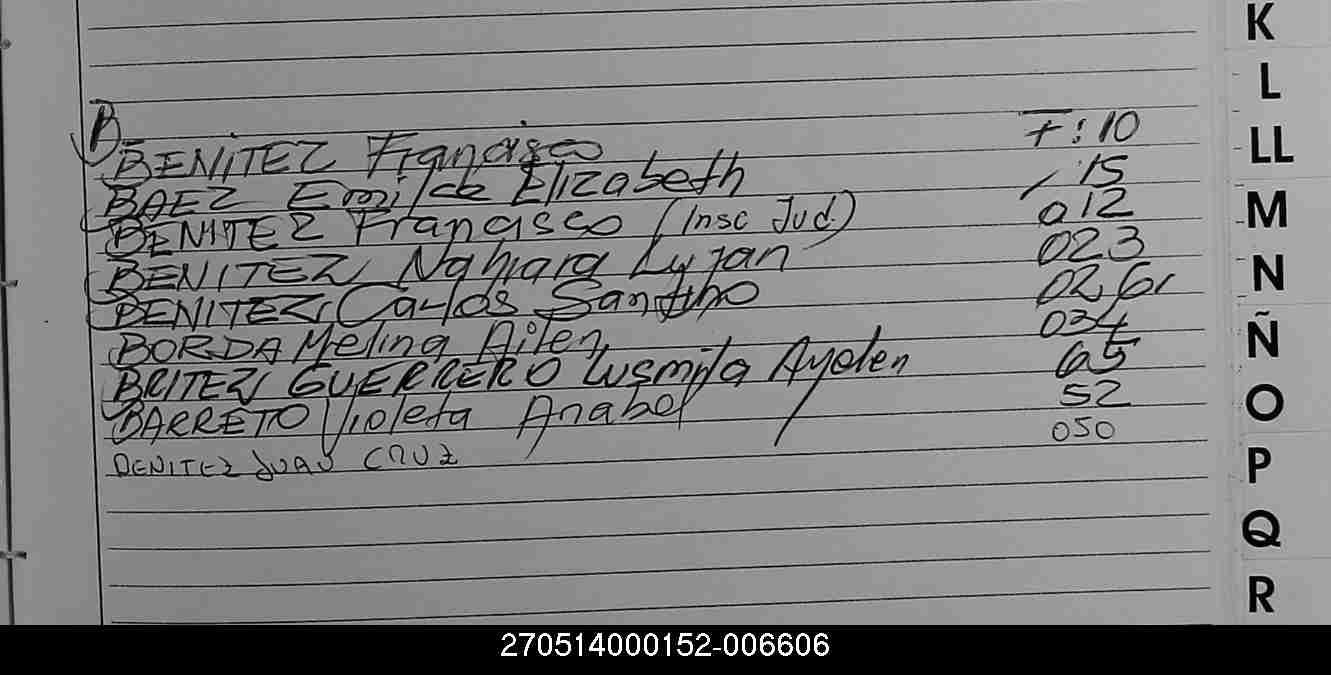 B
BENITEZ Francisco F: 10
BAEZ Emilce Elizabeth / 15
BENITEZ Francisco (Insc Jud.) 012
BENITEZ Nahiara Lujan 023
BENITEZ Carlos Santino 026
BORDA Melina Ailen 034
BRITEZ GUERRERO Lusmila Ayelen 65
BARRETO Violeta Anabel 52
BENITEZ JUAN CRUZ 050
K
L
LL
M
N
Ñ
O
P
Q
R
270514000152-006606